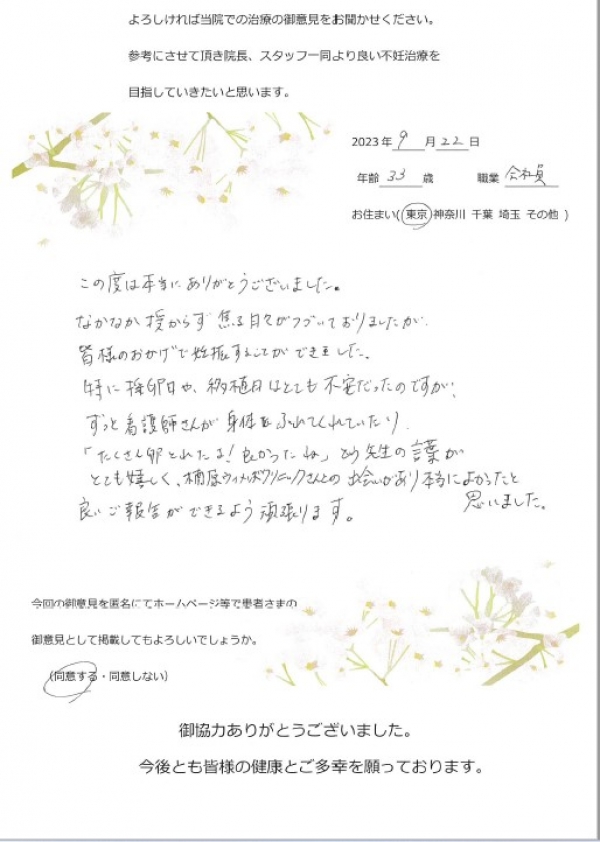 よろしければ当院での治療の御意見をお聞かせください。
参考にさせて頂き院長、スタッフ一同より良い不妊治療を
目指していきたいと思います。
2023年 9 月 22 日
年齢 33 歳 職業 会社員
お住まい( 東京 神奈川 千葉 埼玉 その他 )
この度は本当にありがとうございました。
なかなか授からず焦る日々がつづいておりましたが、
皆様のおかげで妊娠することができました。
特に採卵日や、移植日はとても不安だったのですが、
ずっと看護師さんが身体をふれてくれていたり、
「たくさん卵とれたよ！良かったね」という先生の言葉が
とても嬉しく、楠原ウィメンズクリニックさんとの出会いがあり本当によかったと
思いました。
良いご報告ができるよう頑張ります。
今回の御意見を匿名にてホームページ等で患者さまの
御意見として掲載してもよろしいでしょうか。
(同意する・同意しない)
御協力ありがとうございました。
今後とも皆様の健康とご多幸を願っております。